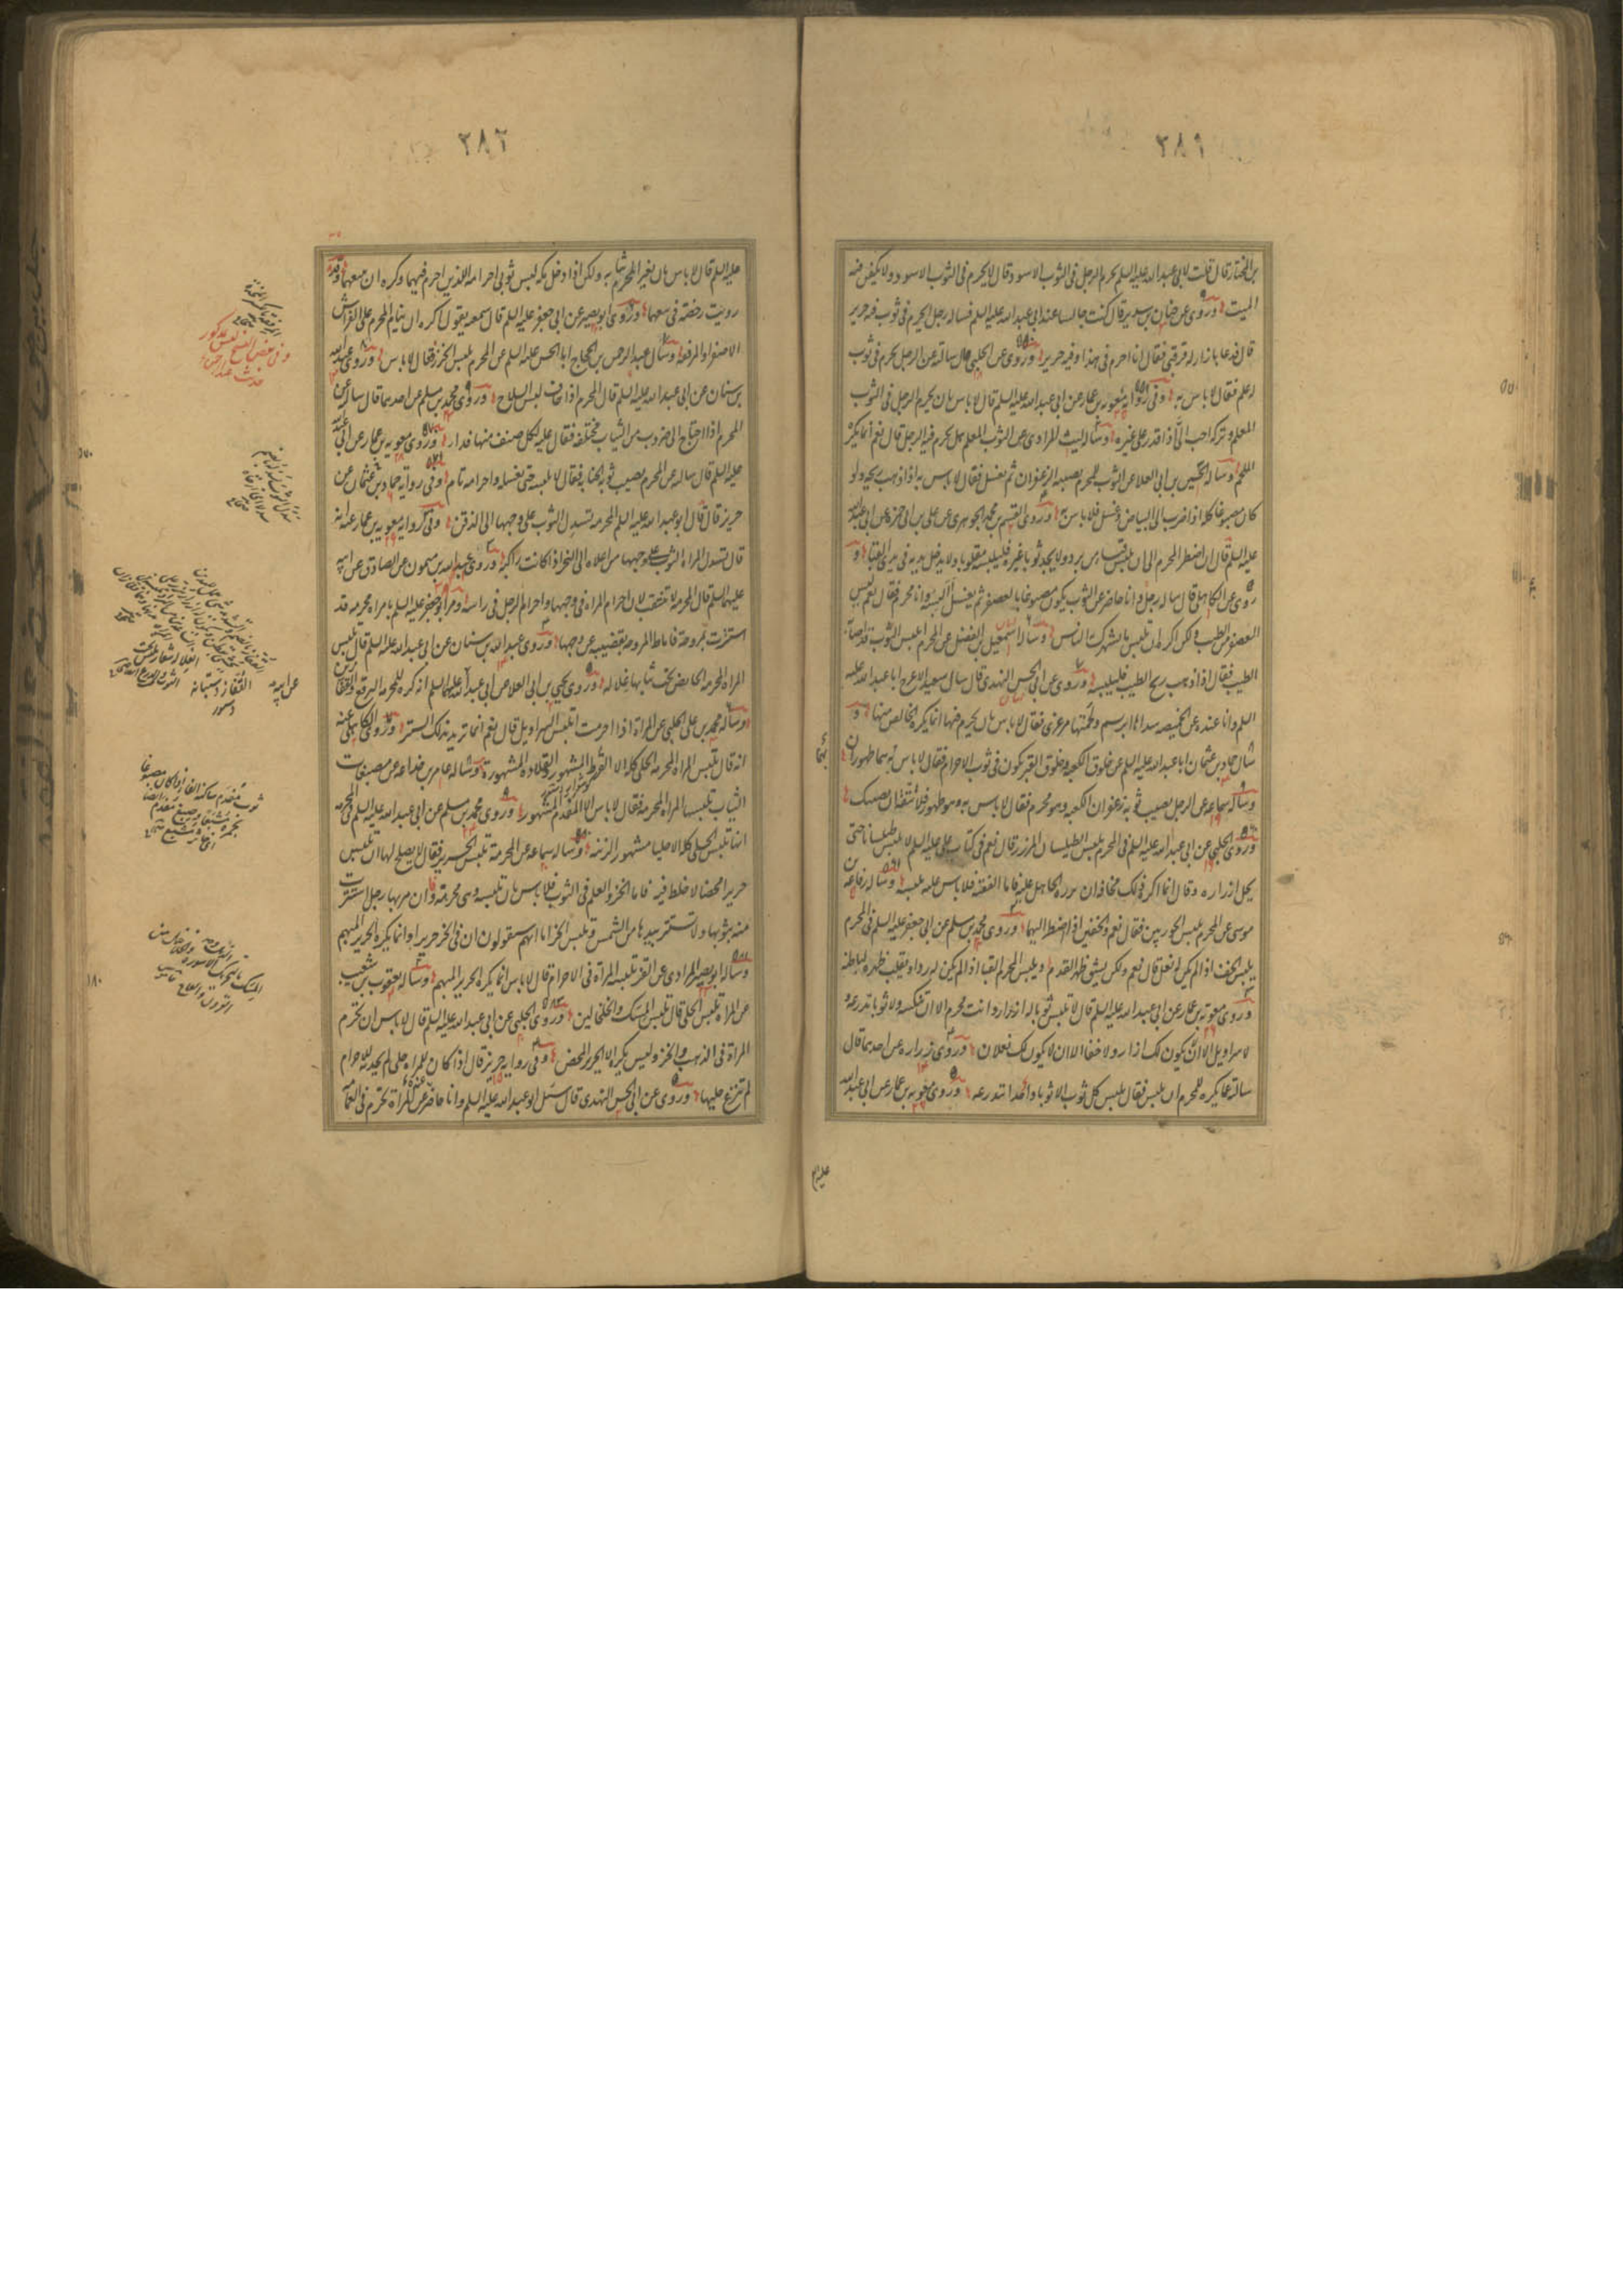 ٣٨١
بن المختار قال قلت لابی عبدالله علیه السلم یحرم الرجل فی الثوب الاسود قال لا یحرم فی الثوب الاسود ولا یکفن فیه
المیت وروی عن حنان بن سدیر قال کنت جالسا عند ابی عبدالله علیه السلم فساله رجل ایحرم فی ثوب فیه حریر
قال فدعا بازار له قرقبی فقال انا احرم فی هذا وفیه حریر وروی عن الحلبی قال سالته عن الرجل یحرم فی ثوب
له علم فقال لا باس به وفی روایة معویه بن عمار عن ابی عبدالله علیه السلم قال لا باس بان یحرم الرجل فی الثوب
المعلم وترکه احب الی اذا قدر علی غیره وساله لیث المرادی عن الثوب المعلم هل یحرم فیه الرجل قال نعم انما یکره
الملحم وساله الحسین بن ابی العلا عن الثوب للمحرم یصیبه الزعفران ثم یغسل فقال لا باس به اذا ذهب ریحه ولو
کان مصبوغا کله اذا ضرب الی البیاض وغسل فلا باس به وروی القسم بن محمد الجوهری عن علی بن ابی حمزه عن ابی عبدالله
علیه السلم قال ان اضطر المحرم الی ان یلبس قباء من برد ولا یجد ثوبا غیره فلیلبسه مقلوبا ولا یدخل یدیه فی یدی القبا و
روی عن الکاهلی قال ساله رجل وانا حاضر عن الثوب یکون مصبوغا بالعصفر ثم یغسل البسه وانا محرم فقال نعم لیس
العصفر من الطیب ولکن اکره ان تلبس ما یشهرک بین الناس وساله اسمعیل بن الفضل عن المحرم یلبس الثوب قد اصابه
الطیب فقال اذا ذهب ریح الطیب فلیلبسه وروی عن ابی الحسن النهدی قال سال سعید الاعرج ابا عبدالله علیه
السلم وانا عنده عن الخمیصه سداها ابریسم ولحمتها مرعزی فقال لا باس بان یحرم فیها انما یکره الخالص منها و
سال حماد بن عثمان ابا عبدالله علیه السلم عن خلوق الکعبه وخلوق القبر یکون فی ثوب الاحرام فقال لا باس به هما طهوران
وساله سماعه عن الرجل یصیب ثوبه زعفران الکعبه وهو محرم فقال لا باس به وهو طهور فلا تتقه ان یصیبک
وروی الحلبی عن ابی عبدالله علیه السلم فی المحرم یلبس الطیلسان المزرر قال نعم فی کتاب علی علیه السلم لا یلبس طیلسانا حتی
یحل ازراره وقال انما اکره ذلک مخافه ان یزره الجاهل علیه فاما الفقیه فلا باس علیه بلبسه وساله رفاعه بن
موسی عن المحرم یلبس الجوربین فقال نعم والخفین اذا اضطر الیهما وروی محمد بن مسلم عن ابی جعفر علیه السلم فی المحرم
یلبس الخف اذا لم یکن له نعل قال نعم ولکن یشق ظهر القدم ویلبس المحرم القبا اذا لم یکن له رداء ویقلب ظهره لباطنه
وروی معویه بن عمار عن ابی عبدالله علیه السلم قال لا تلبس ثوبا له ازرار وانت محرم الا ان تنکسه ولا ثوبا تدرعه و
لا سراویل الا ان یکون لک ازار ولا خفا الا ان لا یکون لک نعلان وروی زراره عن احدهما قال
سالته عما یکره للمحرم ان یلبس فقال یلبس کل ثوب الا ثوبا واحدا تدرعه وروی معویه بن عمار عن ابی عبدالله
علیه
٣٨٢
علیه السلم قال لا باس بان یغیر المحرم ثیابه ولکن اذا دخل مکه لبس ثوبی احرامه اللذین احرم فیهما وکره ان یبیعهما وقد
رویت رخصة فی بیعهما وروی ابو بصیر عن ابی جعفر علیه السلم قال سمعته یقول اکره ان ینام المحرم علی الفراش
الاصفر او المرفقه وسال عبدالرحمن بن الحجاج ابا الحسن علیه السلم عن المحرم یلبس الخز فقال لا باس وروی عبدالله
بن سنان عن ابی عبدالله علیه السلم قال المحرم اذا خاف لبس السلاح وروی محمد بن مسلم عن احدهما قال سالته عن
المحرم اذا احتاج الی ضروب من الثیاب مختلفه فقال علیه لکل صنف منها فداء وروی معویه بن عمار عن ابی عبدالله
علیه السلم قال ساله عن المحرم یصیب ثوبه الجنابه فقال لا یلبسه حتی یغسله واحرامه تام وفی روایة حماد بن عثمان عن
حریز قال قال ابو عبدالله علیه السلم المحرمه تسدل الثوب علی وجهها الی الذقن وفی روایة معویه بن عمار عنه انه
قال تسدل المراه الثوب علی وجهها من اعلاه الی النحر اذا کانت راکبة وروی عبدالله بن میمون عن الصادق عن ابیه
علیهما السلم قال المحرمه لا تتنقب لان احرام المراه فی وجهها واحرام الرجل فی راسه ومر ابو جعفر علیه السلم بامراه محرمه قد
استترت بمروحة فاماط المروحه بقضیبه عن وجهها وروی عبدالله بن سنان عن ابی عبدالله علیه السلم قال تلبس
المراه المحرمه الحایض تحت ثیابها غلاله وروی یحیی بن ابی العلا عن ابی عبدالله علیه السلم انه کره للمحرمه البرقع والقفازین
وساله محمد بن علی الحلبی عن المراة اذا احرمت اتلبس السراویل قال نعم انما ترید بذلک الستر وروی الکاهلی عنه
انه قال تلبس المراه المحرمه الحلی کله الا القرط المشهور والقلاده المشهورة وساله عامر بن جذاعه عن مصبغات
الثیاب تلبسها المراه المحرمه فقال لا باس الا المفدم المشهور وروی محمد بن مسلم عن ابی عبدالله علیه السلم فی المحرمه
انها تلبس الحلی کله الا حلیا مشهورا لزینه وساله سماعه عن المحرمة تلبس الحریر فقال لا یصلح لها ان تلبس
حریرا محضا لا خلط فیه فاما الخز والعلم فی الثوب فلا باس بان تلبسه وهی محرمة وان مر بها رجل استترت
منه بثوبها ولا تستتر بیدها من الشمس وتلبس الخز اما انهم سیقولون ان فی الخز حریرا وانما یکره الحریر المبهم
وساله ابو بصیر المرادی عن القز تلبسه المرأة فی الاحرام قال لا باس انما یکره الحریر المبهم وساله یعقوب بن شعیب
عن المراه تلبس الحلی قال تلبس المسک والخلخالین وروی الحلبی عن ابی عبدالله علیه السلم قال لا باس ان تحرم
المراة فی الذهب والخز ولیس یکره الا الحریر المحض وفی روایه حریز قال اذا کان للمراه حلی لم تحدثه للاحرام
لم تنزع حلیها وروی عن ابی الحسن النهدی قال سئل ابو عبدالله علیه السلم وانا حاضر عن المراة تحرم فی العمامه